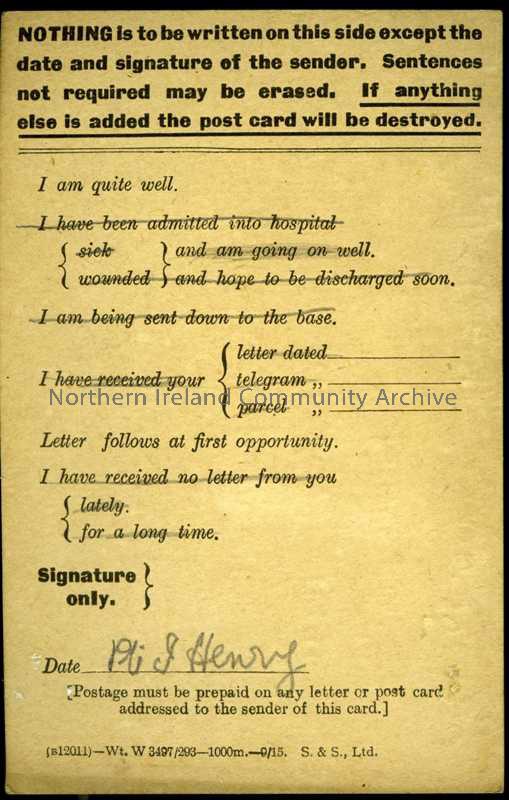 NOTHING is to be written on this side except the
date and signature of the sender. Sentences
not required may be erased. If anything
else is added the post card will be destroyed.
I am quite well.
I have been admitted into hospital
sick and am going on well.
wounded and hope to be discharged soon.
I am being sent down to the base.
letter dated
I have received your telegram „
parcel „
Northern Ireland Community Archive
Letter follows at first opportunity.
I have received no letter from you
lately.
for a long time.
Signature
only.
Date Henry
[Postage must be prepaid on any letter or post card
addressed to the sender of this card.]
(B12011)—Wt. W 3497/293—1000m.—9/15. S. & S., Ltd.